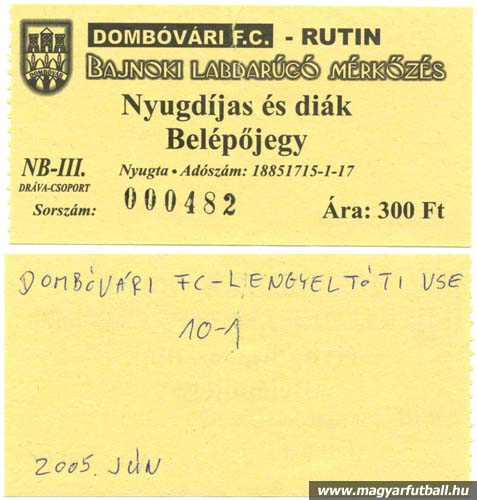 DOMBÓVÁRI F.C. - RUTIN
BAJNOKI LABDARÚGÓ MÉRKŐZÉS
DOMBÓVÁR
Nyugdíjas és diák
Belépőjegy
NB-III. Nyugta • Adószám: 18851715-1-17
DRÁVA-CSOPORT
Sorszám: 000482 Ára: 300 Ft
DOMBÓVÁRI FC-LENGYELTÓTI VSE
10-1
2005. JÚN
www.magyarfutball.hu